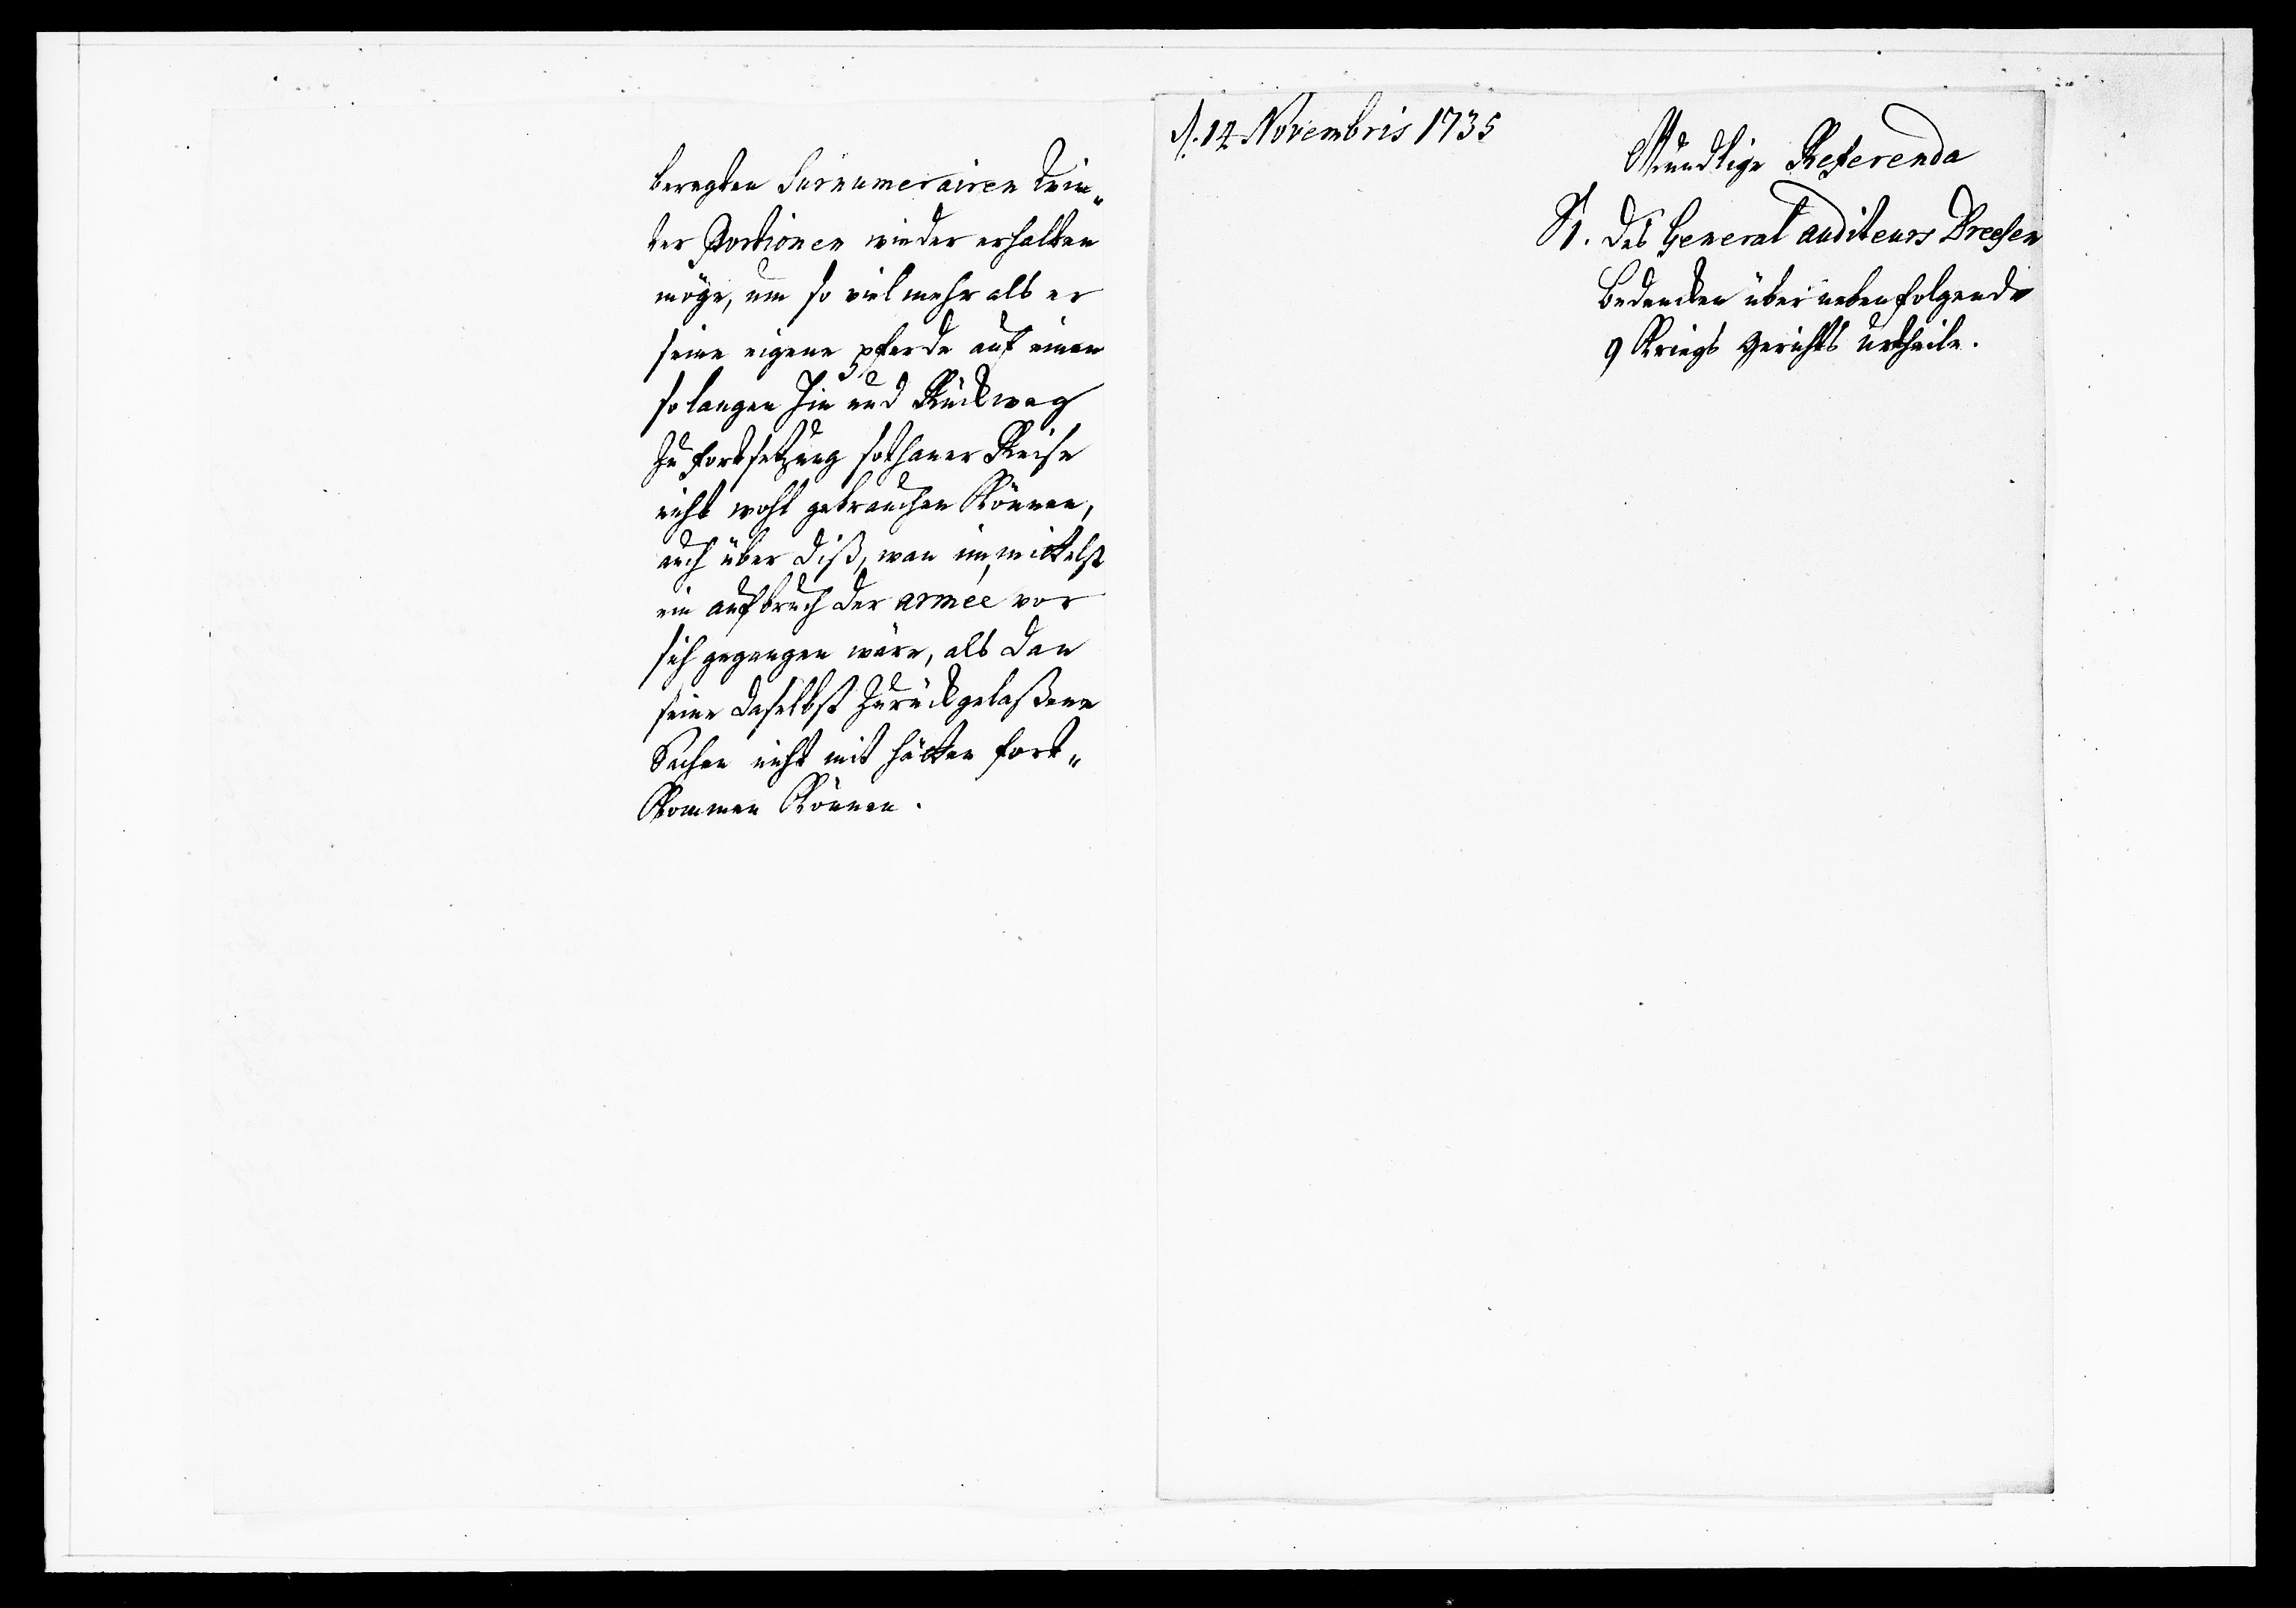 beregten Surnumerairen Win„
ter Portionen wieder erhalten
möge, um so viel mehr als er
seine eigene pferde auf einen
so langen Hin und Rückweg
zu fortsetzung sothaner Reise
nicht wohl gebrauchen Können,
auch über diß, wan immittelst
ein aufbruch der armée vor
sich gegangen wäre, als dan
seine daselbst zurückgelaßene
Sachen nicht mit hätten fort„
Kommen Können.
d. 14 Novembris 1735
Mündlige Referenda
§1. Des General auditeurs Dreesen
Bedencken über nebenfolgende
9 Kriegs gerichts urtheile.